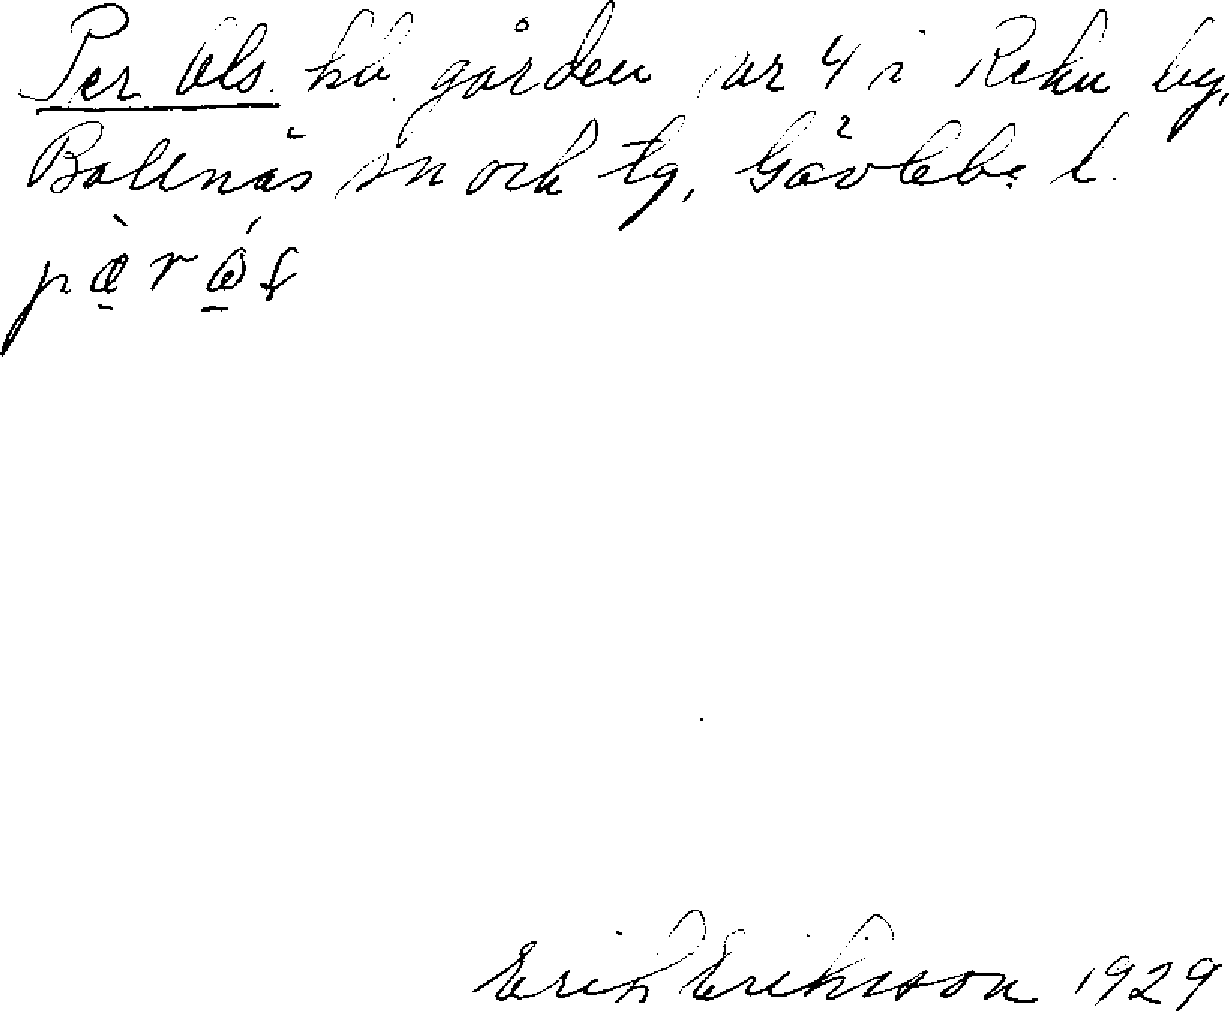 Per Ols. hd. gården nr 4 i Rehn by,
Bollnäs sn och tg, Gävlebs l.
Erik Eriksson 1929